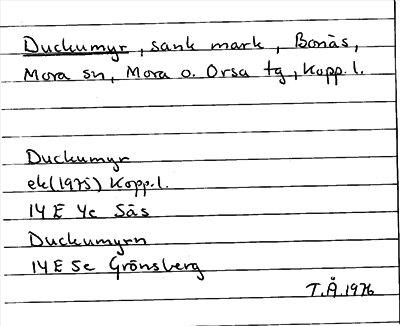 Duckumyr, sank mark, Bonäs,
Mora sn, Mora o. Orsa tg, Kopp. l.
Duckumyr
ek(1975) Kopp.l.
14 E 4c Säs
Duckumyrn
14 E 5c Grönsberg
T.Å.1976